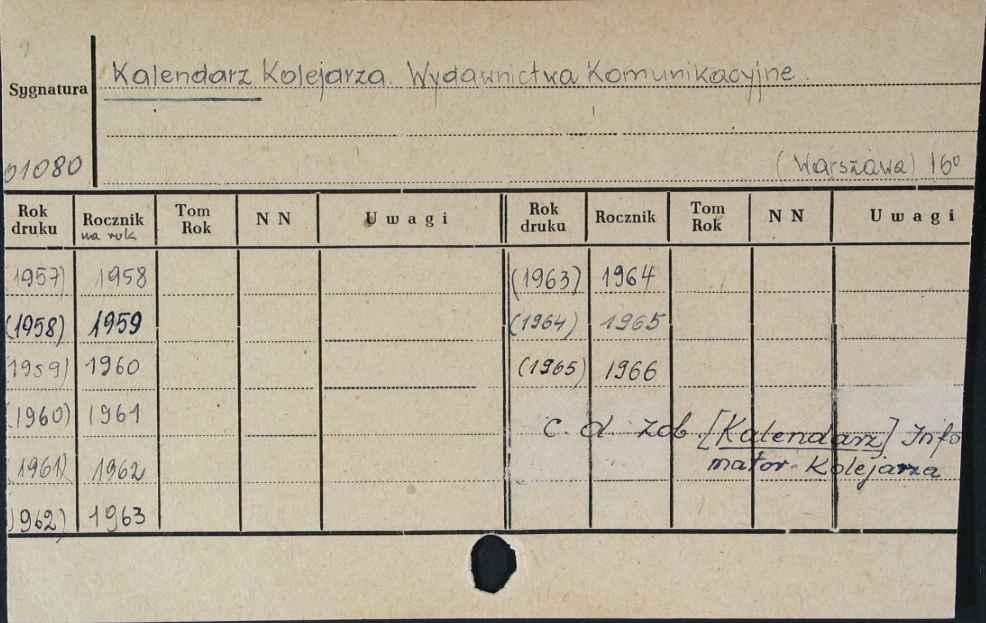 Kalendarz Kolejarza. Wydawnictwa Komunikacyjne.
Sygnatura
01080
(Warszawa) 16°
Rok druku Rocznik na rok Tom Rok N N Uwagi Rok druku Rocznik Tom Rok N N Uwagi
1957) 1958 (1963) 1964
(1958) 1959 (1964) 1965
1959) 1960 (1965) 1966
(1960) 1961
c. d. zob. [Kalendarz] Info
(1961) 1962
mator Kolejarza
1962) 1963